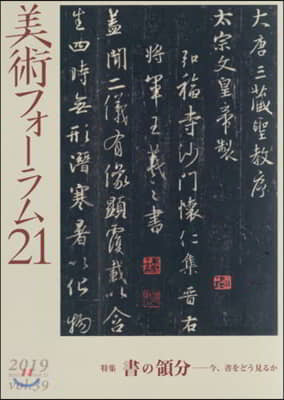 美術フォーラム21
大唐三藏聖教序
太宗文皇帝製
弘福寺沙門懷仁集晉右
將軍王羲之書
蓋聞二儀有像顯覆載以含
生四時無形潛寒暑以化物
特集 書の領分——今、書をどう見るか
2019
vol.39